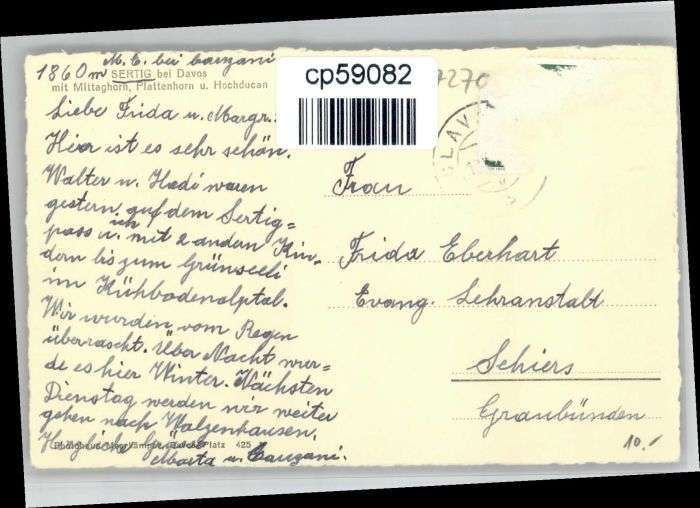 M. C. bei Canzani
1860 m SERTIG bei Davos
mit Mittaghorn, Plattenhorn u. Hochducan
cp59082
7270
Liebe Frida u. Margr.
Hier ist es sehr schön.
Walter u. Hedi waren
gestern auf dem Sertig=
pass u. ich mit 2 andern Kin-
dern bis zum Grünseeli
im Kühbodenalptal.
Wir wurden vom Regen
überrascht. Über Nacht wur-
de es hier Winter. Nächsten
Dienstag werden wir weiter
gehen nach Walzenhausen.
Herzliche Grüsse
Marta u. Canzani.
Platz 425
LAV
Frau
Frida Eberhart
Evang. Lehranstalt
Schiers
Graubünden
10.-